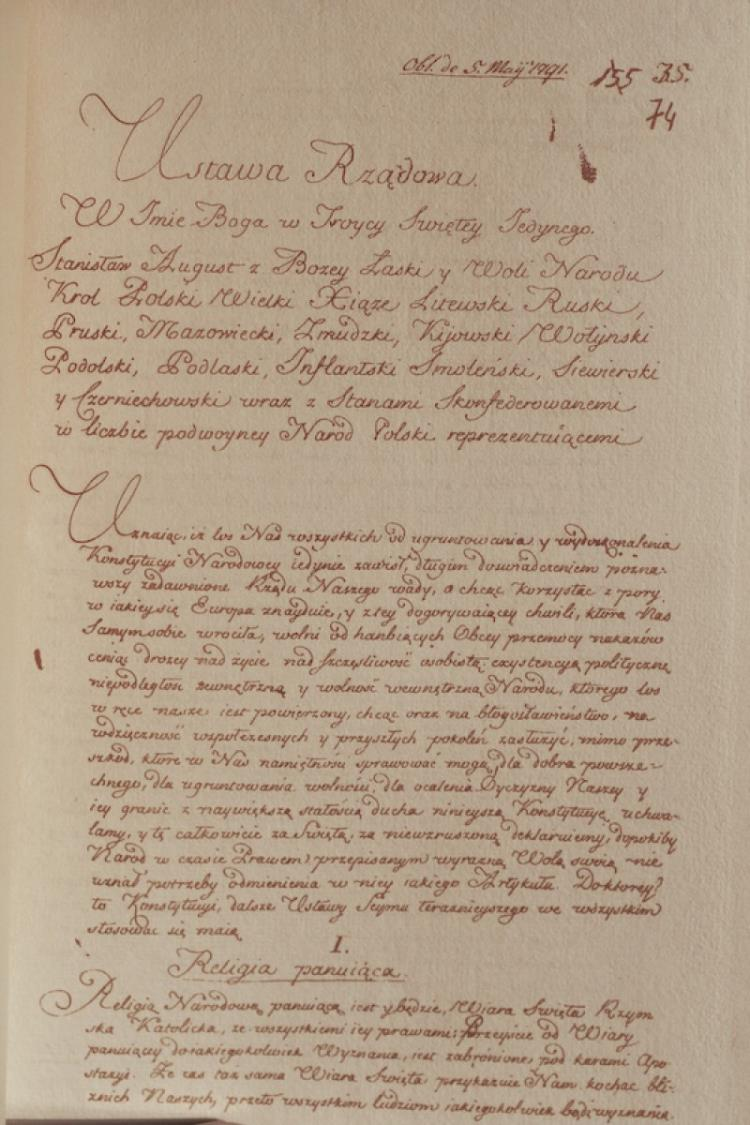 Obl. de 5. Maÿ 1791.
155 35.
74
Ustawa Rządowa.
W Imie Boga w Troycy Swiętey Jedynego.
Stanisław August z Bozey Łaski y Woli Narodu
Krol Polski Wielki Xiąze Litewski Ruski,
Pruski, Mazowiecki, Zmudzki, Kijowski Wołyński
Podolski, Podlaski, Inflantski Smoleński, Siewierski
y Czerniechowski wraz z Stanami Skonfederowanemi
w liczbie podwoyney Naród Polski reprezentuiącemi
Uznaiąc, iż los Nas wszystkich od ugruntowania y wydoskonalenia
Konstytucyi Narodowey iedynie zawisł, długim doswiadczeniem pozna-
wszy zadawnione Rządu Naszego wady, a chcąc korzystać z pory
w iakiey się Europa znayduie, y z tey dogorywaiącey chwili, która Nas
samym sobie wrociła, wolni od hanbiących Obcey przemocy nakazów
ceniąc drożey nad życie nad szczęsliwość osobistą, exystencyą polityczną
niepodległość zewnętrzną y wolność wewnętrzną Narodu, którego los
w ręce nasze iest powierzony, chcąc oraz na błogosławieństwo, na
wdzięczność współczesnych y przyszłych pokoleń zasłużyć, mimo prze-
szkod, które w Nas namiętności sprawować mogą, dla dobra powsze-
chnego, dla ugruntowania wolności, dla ocalenia Oyczyzny Naszey y
iey granic z naywiększą stałością ducha ninieyszą Konstytucyę uchwa-
lamy, y tę całkowicie za swiętą, za niewzruszoną deklaruiemy, dopokiby
Narod w czasie Prawem przepisanym wyrazną Wolą swoią nie
uznał potrzeby odmienienia w niey iakiego Artykułu. Do którey
to Konstytucyi, dalsze Ustawy Seymu teraznieyszego we wszystkim
stosować się maią
I.
Religia panuiąca.
Religią Narodową panuiącą iest y będzie, Wiara Swięta Rzym
ska Katolicka, ze wszystkiemi iey prawami; Przeyscie od Wiary
panuiącey do iakiegokolwiek Wyznania, iest zabronione pod karami Apo
stazyi. Ze zas taz sama Wiara Swięta przykazuie Nam kochać bli-
znich Naszych, przeto wszystkim ludziom iakiegokolwiek bądź wyznania.